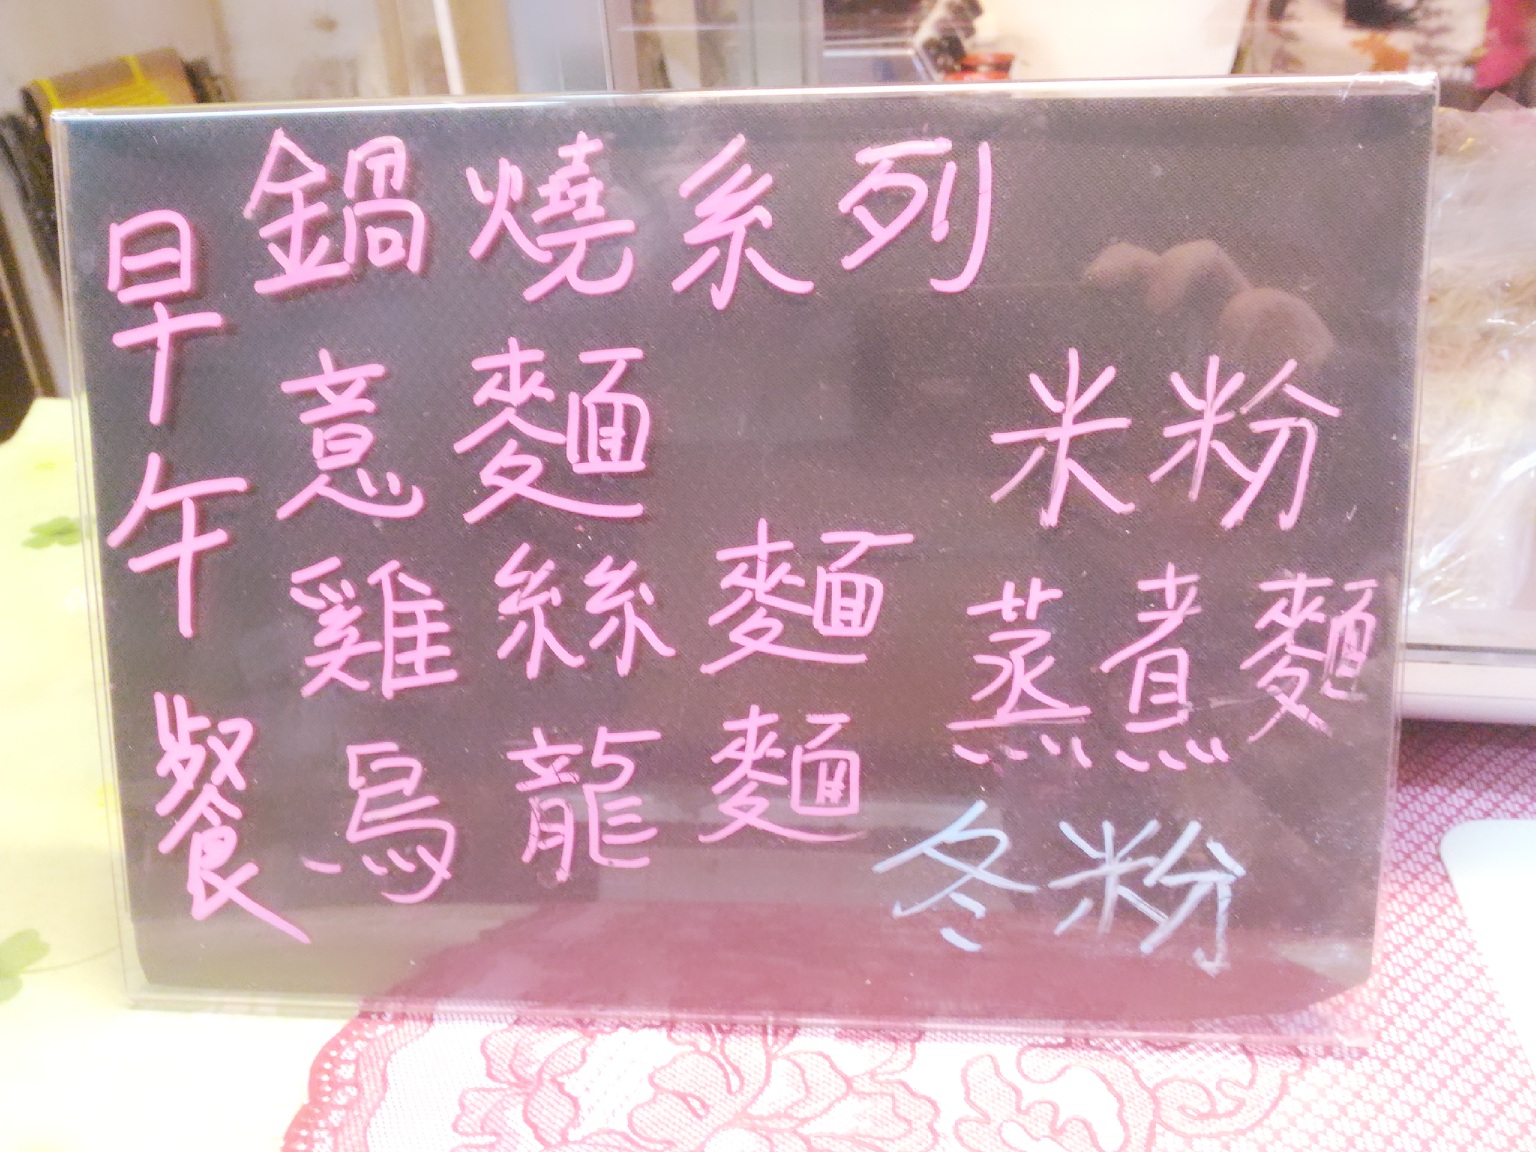 早午餐
鍋燒系列
意麵
雞絲麵
烏龍麵
米粉
蒸煮麵
冬粉